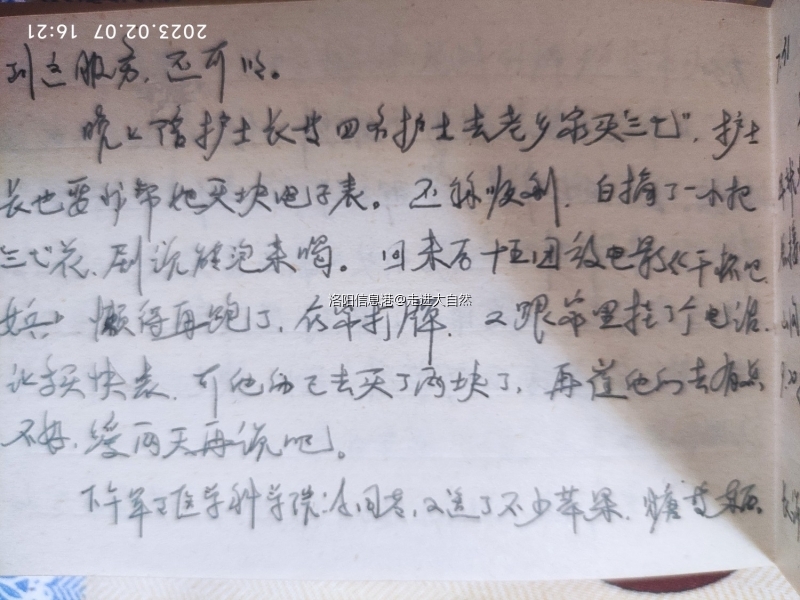 2023.02.07 16:21
到这服务,还可以。
晚上陪护士长等四名护士去老乡家买"三七",护士
长也要我帮她买块电子表。还称顺利,白摘了一小把
三七花,剧说能泡来喝。回来后十五团放电影《干杯吧
女兵》懒得再跑了,在家打牌,又跟家里挂了个电话,
让买快表,可他们已去买了两块了,再催他们去有点
不好,缓两天再说吧。
下午军医学科学院,又送了不少苹果,糖等
洛阳信息港@走进大自然